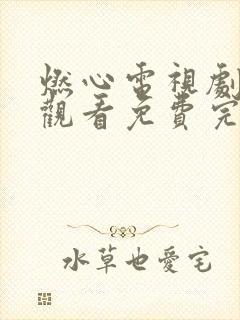 燃心電視劇
觀看免費完
水草也愛宅